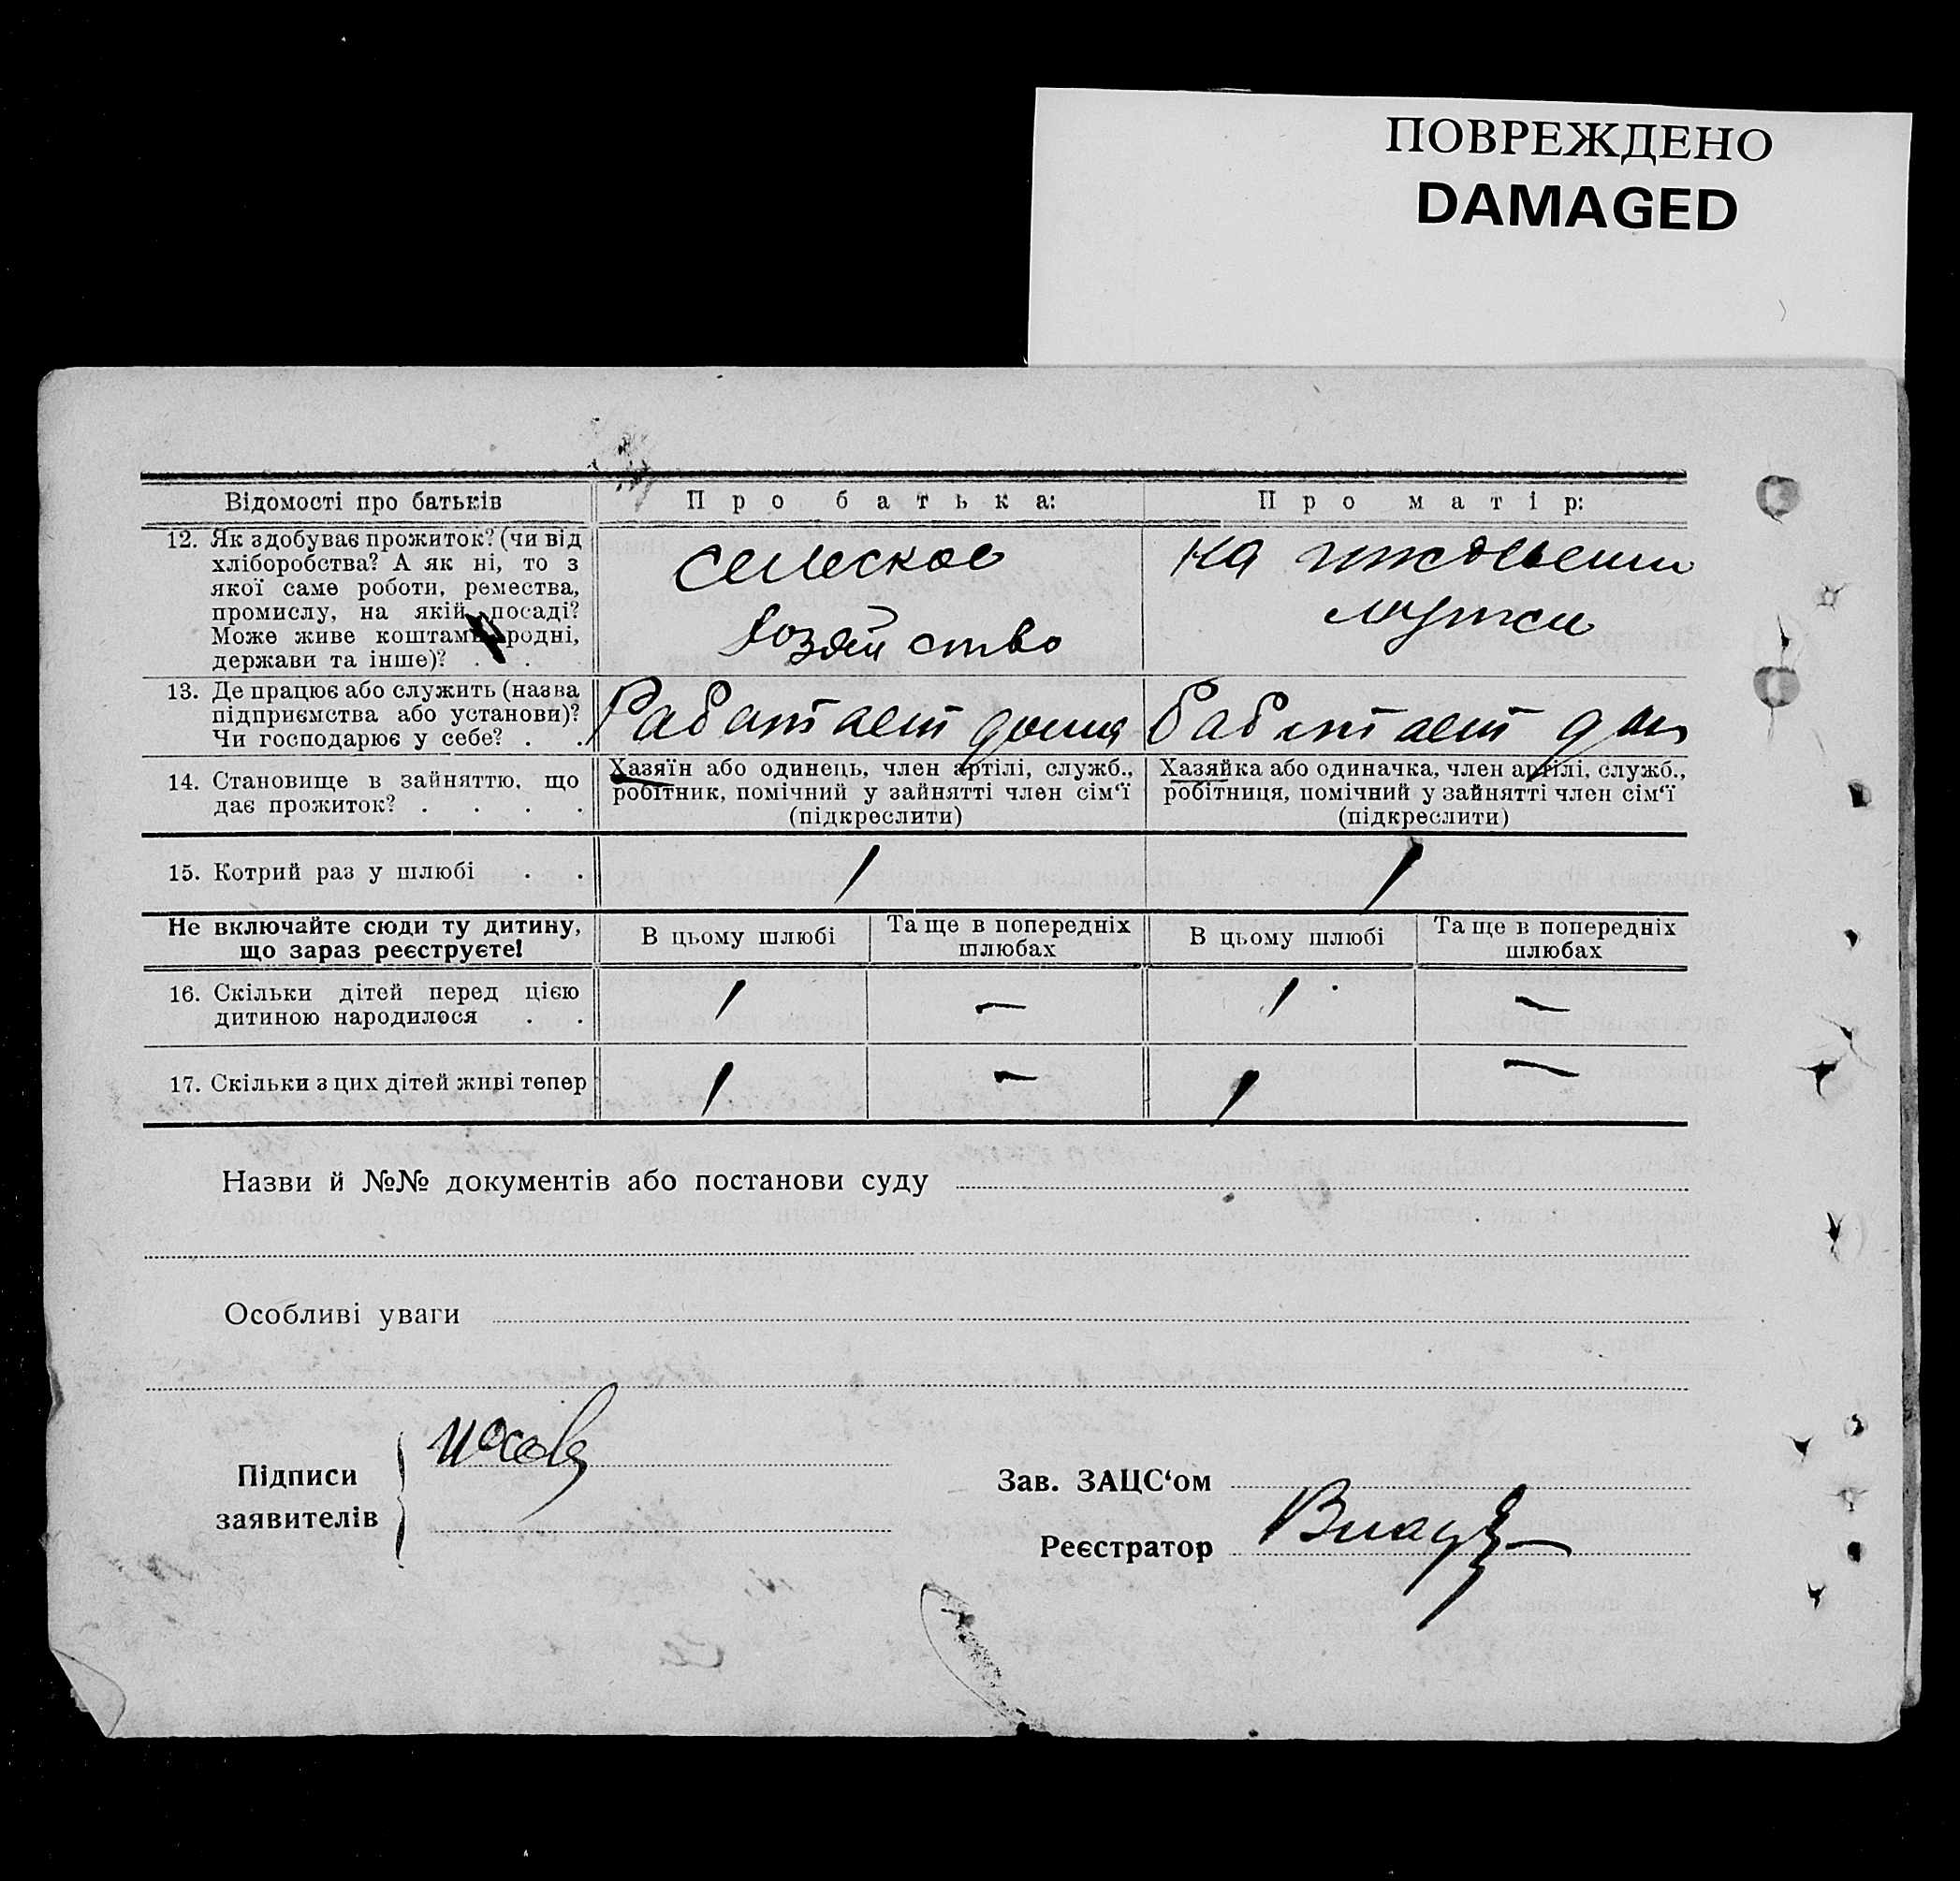 ПОВРЕЖДЕНО
DAMAGED
Відомості про батьків
Про батька:
Про матір:
12. Як здобуває прожиток? (чи від
хліборобства? А як ні, то з
якої саме роботи, ремества,
промислу, на якій посаді?
Може живе коштами родні,
держави та інше)? . .
селеское
хозяйство
на
мужа
13. Де працює або служить (назва
підприємства або установи)?
Чи господарює у себе? . .
Работает дома
Работает дом
14. Становище в зайняттю, що
дає прожиток? . . . .
Хазяїн або одинець, член артілі, служб.,
робітник, помічний у зайнятті член сім‘ї
(підкреслити)
Хазяйка або одиначка, член артілі, служб.,
робітниця, помічний у зайнятті член сім‘ї
(підкреслити)
15. Котрий раз у шлюбі . .
1
1
Не включайте сюди ту дитину,
що зараз реєструєте!
В цьому шлюбі
Та ще в попередніх
шлюбах
В цьому шлюбі
Та ще в попередніх
шлюбах
16. Скільки дітей перед цією
дитиною народилося . .
1
—
1
—
17. Скільки з цих дітей живі тепер
1
—
1
—
Назви й №№ документів або постанови суду
Особливі уваги
Підписи
заявителів
Зав. ЗАЦС‘ом
Реєстратор